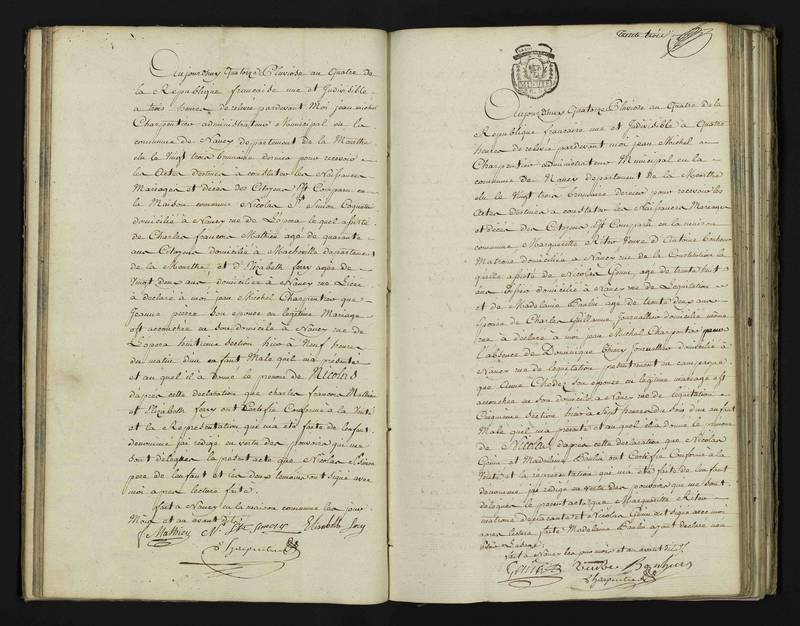 Aujourdhuy Quatorze Pluviose an Quatre de
la Republique francaise une et Indivisible
a trois heures de relevée pardevant Moi jean michel
Charpentier administrateur Municipal en la
commune de Nancy departement de la Meurthe
elu le Vingt trois brumaire dernier pour recevoir
les actes destinés a constater les Naissances
Mariages et décès des Citoyens est Comparu en
la Maison commune Nicolas Simon
domicilié à Nancy rue de L'opera lequel assisté
de Charles francois Mathieu agé de quarante
ans Citoyen domicilié à departement
de la Meurthe et d'Elizabeth fory agée de
Vingt deux ans domiciliée à Nancy rue
a déclaré a moi jean Michel Charpentier que
Jeanne pierre Son epouse en legitime Mariage
est accouchée en son domicile à Nancy rue de
L'opera huitieme Section hier à Neuf heures
du matin d'un enfant Male qu'il m'a présenté
et auquel il a donné le prenom de Nicolas
d'apres cette déclaration que charles francois Mathieu
et Elizabeth forry ont Certifié Conforme à la Verité
et la Représentation qui m'a été faite de l'enfant
denommé j'ai rédigé en vertu des pouvoirs qui me
sont délégués le present acte que Nicolas Simon
pere de l'enfant et les deux temoins ont Signé avec
moi apres lecture faite.
fait a Nancy en la maison commune les jour
Mois et an avant dits
Mathieu Elisabeth fory
Charpentier
trente trois
Aujourdhuy Quatorze Pluviose an Quatre de la
Republique francaise une et Indivisible à Quatre
heures de relevée pardevant moi jean Michel
Charpentier administrateur Municipal en la
commune de Nancy departement de la Meurthe
elu le Vingt trois brumaire dernier pour recevoir les
Actes destinés a constater les Naissances Mariages
et décès des Citoyens est Comparu en la maison
commune Marguerite Veuve d'Antoine
Matrone domiciliée a Nancy rue de la Constitution la
quelle assistée de Nicolas agé de trente huit
ans domicilié à Nancy rue de Legislation
et de Madelaine Paulin agée de trente deux ans
Epouse de Charles Guillaume Journallier domiciliée même
rue a déclaré a moi jean Michel Charpentier
l'absence de Dominique Journallier domicilié à
Nancy rue de legislation presentement en campagne
que Anne son epouse en legitime mariage est
accouchée en son domicile à Nancy rue de Legislation
Cinquième Section hier a Sept heures du soir d'un enfant
Male qu'elle m'a presenté et auquel elle a donné le prenom
de Nicolas d'apres cette déclaration que Nicolas
et Madelaine Paulin ont Certifié Conforme à la
Verité et la représentation qui m'a été faite de l'enfant
denommé j'ai rédigé en vertu des pouvoirs qui me sont
délégués le present acte que Marguerite
matrone déclarante et Nicolas ont signé avec moi
apres lecture faite Madelaine Paulin ayant déclaré ne
fait à Nancy les jour mois et an avant dits
Veuve
Charpentier